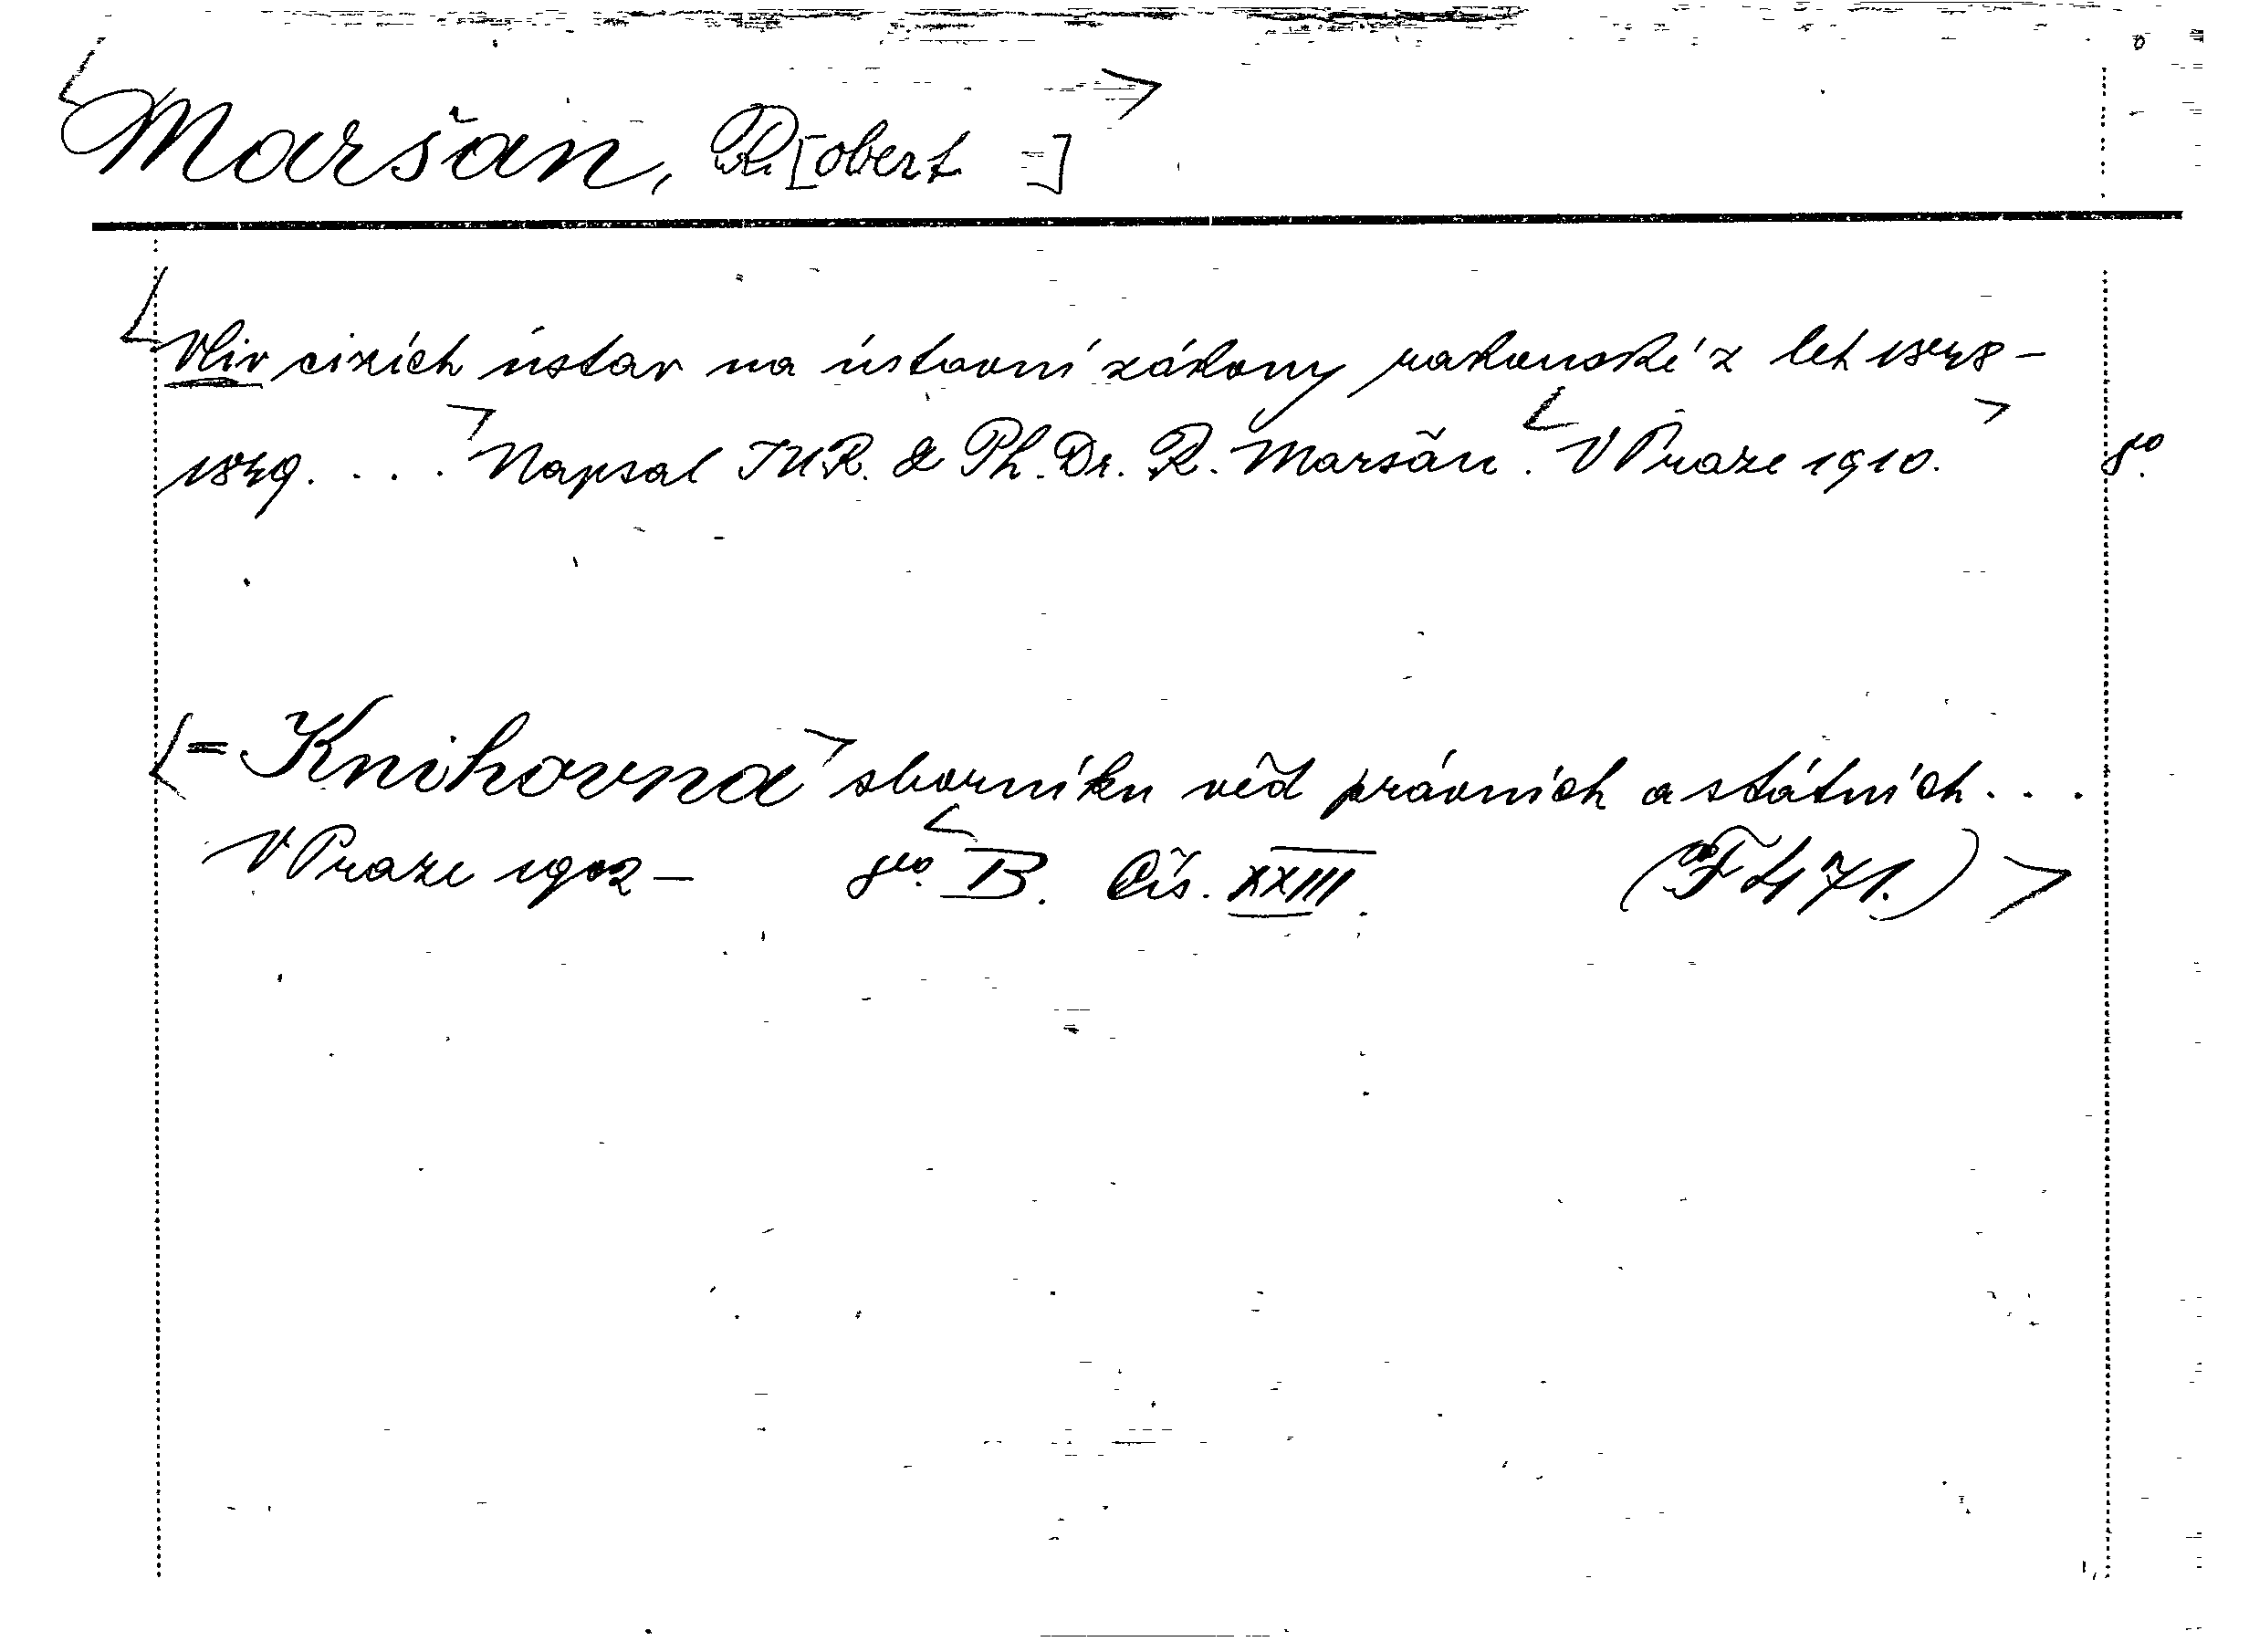 <Maršan, R[obert ]>
<Vliv cizích ústav na ústavní zákony rakouské z let 1848-
1849. . . .> Napsal JUR. & Ph. Dr. R. Maršan. <V Praze 1910.> 8º.
<= Knihovna> sborníku věd právních a státních . . .
V Praze 1902 - 8vo. <B. Čís. XXIII. (F 471.)>